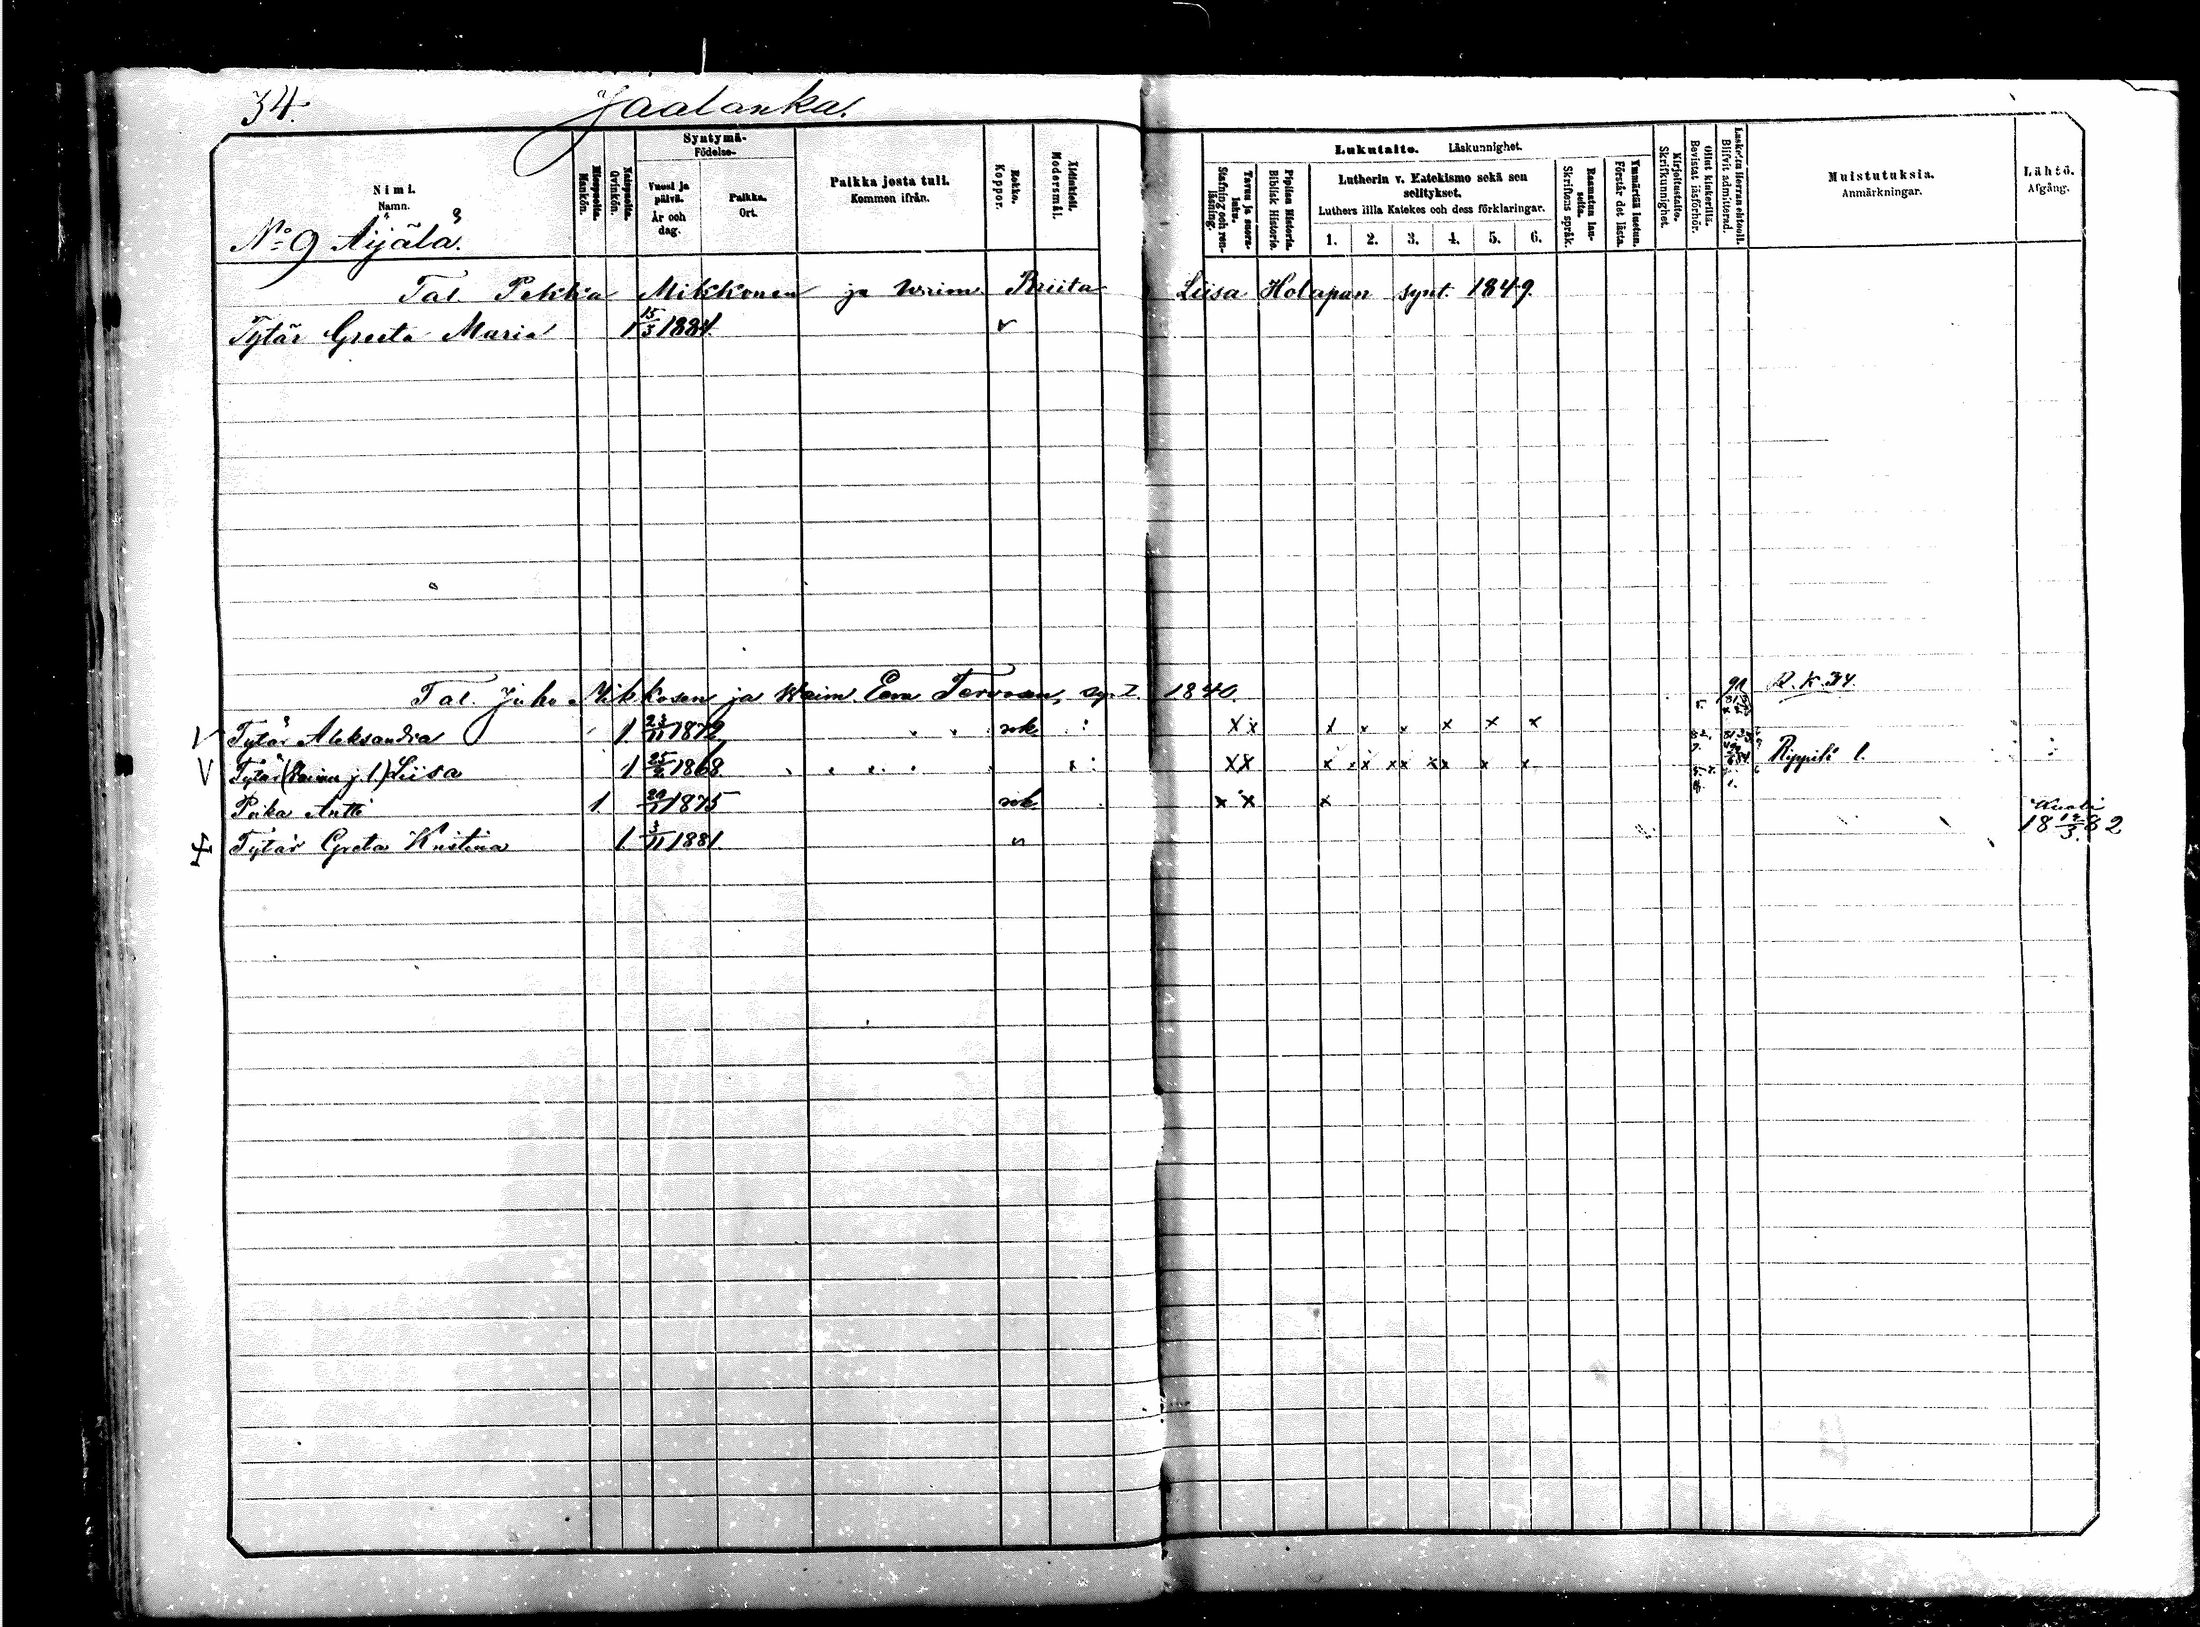 34. Jaalanka.
Nimi. Namn.
Miespuolia. Mankön.
Naispuolia. Qvinkön.
Syntymä- Födelse-
Vuosi ja päivä. År och dag.
Paikka. Ort.
Paikka josta tuli. Kommen ifrån.
Rokko. Koppor.
Äidinkieli. Modersmål.
Lukutaito. Läskunnighet.
Tavuu ja suora-luku. Stafning och ren-läsning.
Piplian Historia. Biblisk Historie.
Lutherin v. Katekismo sekä sen selitykset.
Luthers lilla Katekes och dess förklaringar.
1. 2. 3. 4. 5. 6.
Raamatun lauseita. Skriftens språk.
Ymmärtää luetun. Förstår det lästa.
Kirjoitustaito. Skrifkunnighet.
Ollut kinkerillä. Bevistat läsförhör.
Laskettu Herran ehtool. Blifvit admitterad.
Muistutuksia. Anmärkningar.
Lähtö. Afgång.
No 9 Äijälä.
Tal. Pekka Mikkonen ja waim. Briita Liisa Holapan synt. 1849.
Tytär Greeta Maria 1 15/5 1884. v
Tal. Juho Mikkosen ja Waim. Eeva Tervosen, synt 1840. 91 R. K. 34.
V Tytär Aleksandra 1 23/11 1872 rok x x x x x x x x
V Tytär (Waimo j. l) Liisa 1 25/2 1868 x x x x x x x x Rippik. l.
Poika Antti 1 29/1 1875 rok x x x
Kuoli
Tytär Greta Kristina 1 3/11 1881 v 18 12/3 82